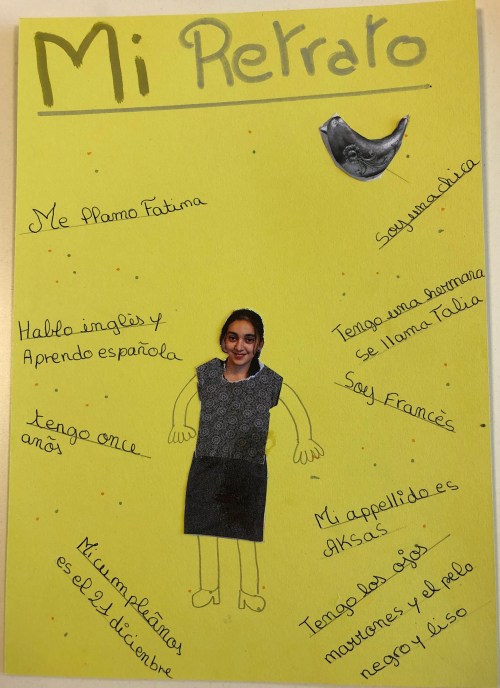 Mi Retrato
Me llamo Fatima
Soy una chica
Hablo inglès y
Aprendo española
Tengo una hermana
se llama Talia
Soy Francès
tengo once
anõs
Mi appellido es
AKSAS
Mi cumpleãnos
es el 21 diciembre
Tengo los ojos
marrones y el pelo
negro y liso